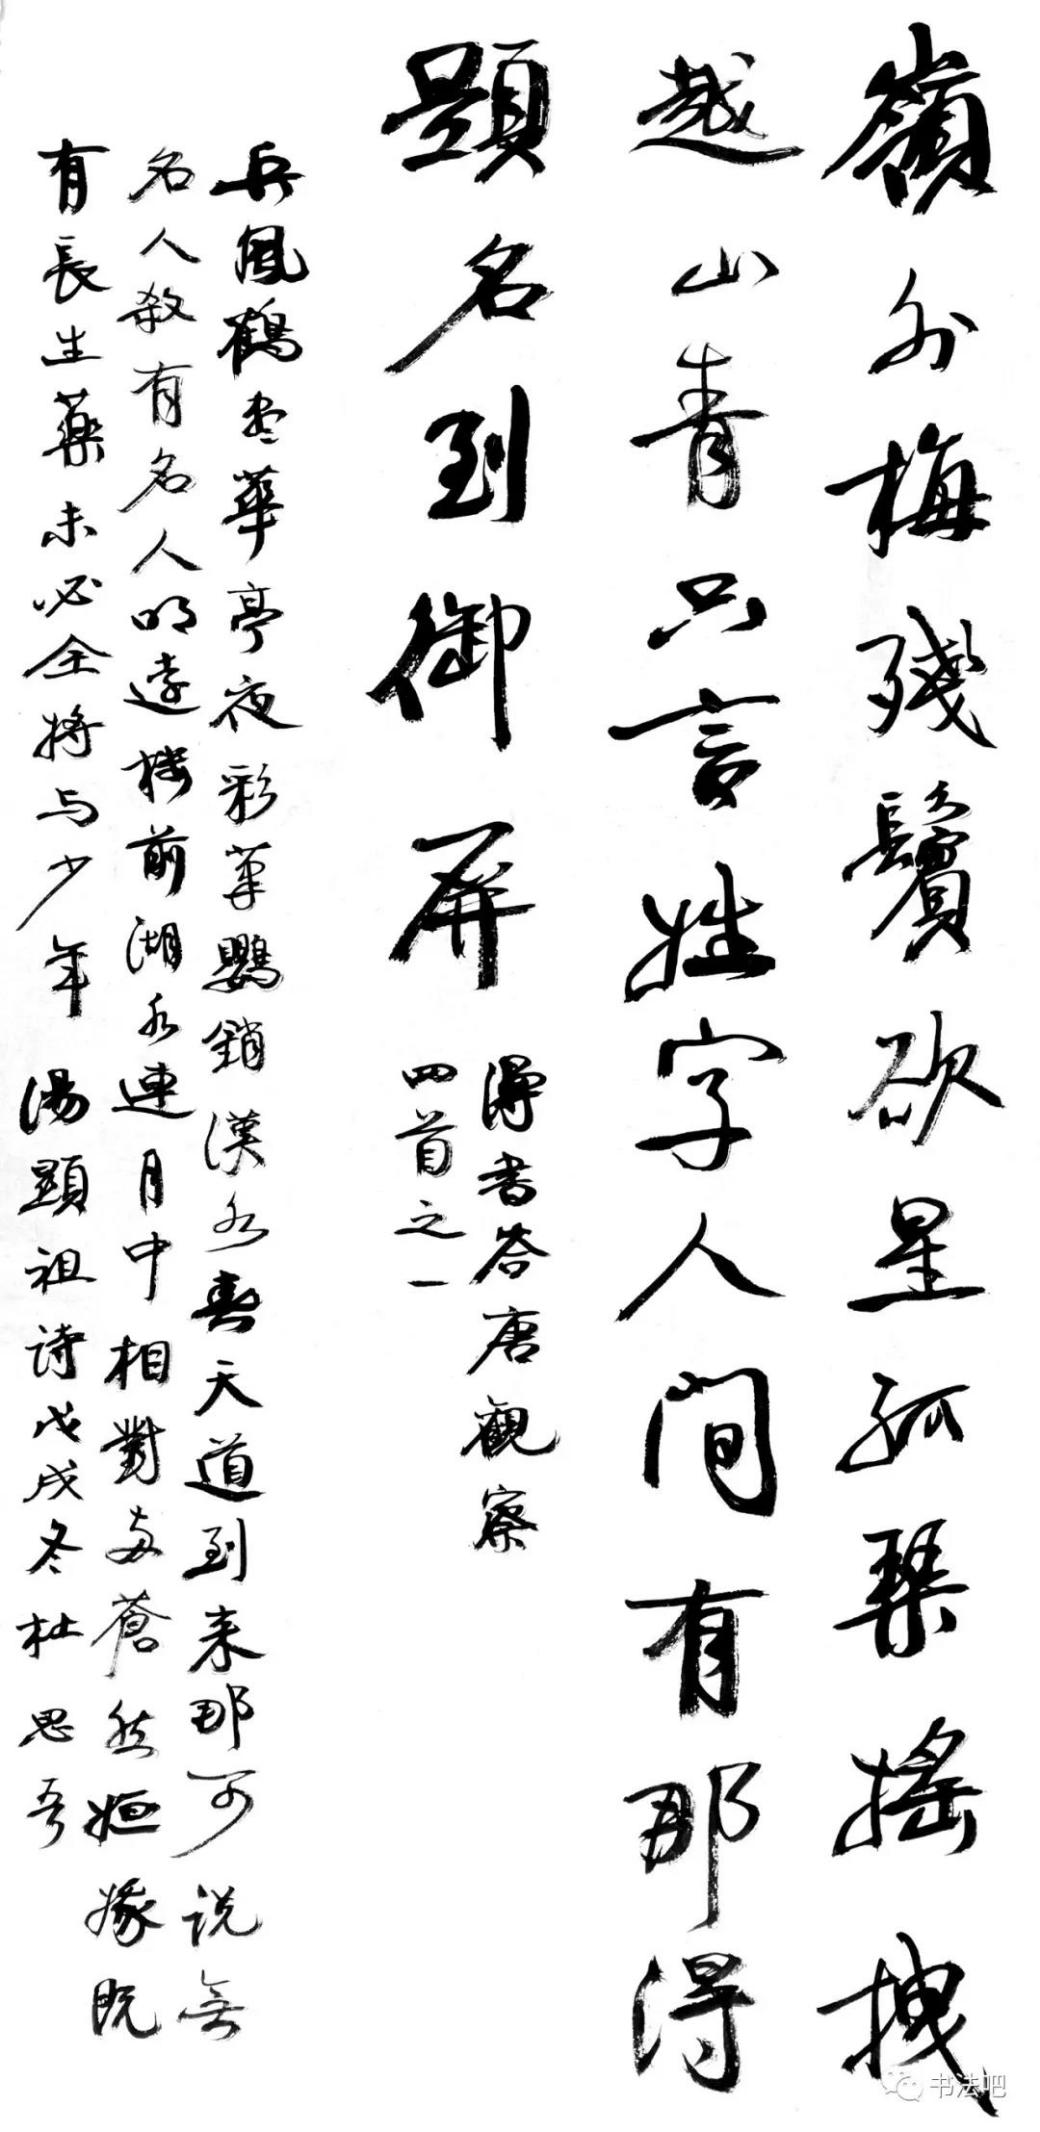 嶺外梅殘鬢欲星孤琴搖拽
越山青只言姓字人間有那得
題名到御屏
得書答唐觀察
四首之一
兵鳳鶴盡華亭夜彩筆鸚銷漢水春天道到來那可说無
名人教有名人明遠樓前湖水連月中相對两蒼然姮嫦既
有長生藥未必全將与少年 湯顯祖诗戊戌冬杜思吾
书法吧